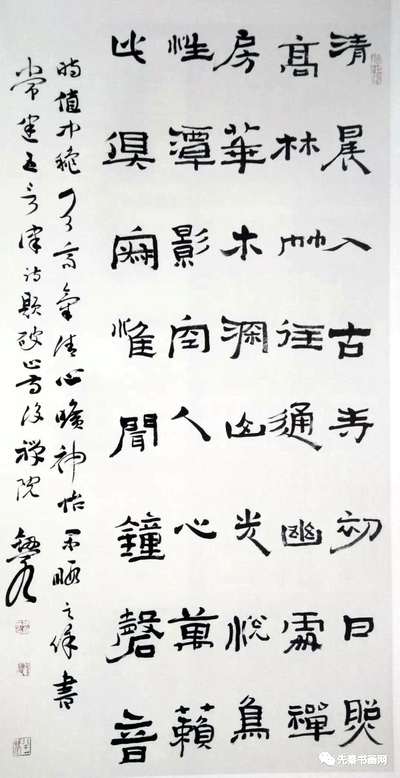 清晨入古寺初日照
高林竹徑通幽處禪
房華木深山光悅鳥
性潭影空人心萬籟
此俱寂惟聞鐘磬音
時值中秋天高氣清心曠神怡暇之餘書
常建五言律詩題破山寺後禪院
先秦书画网